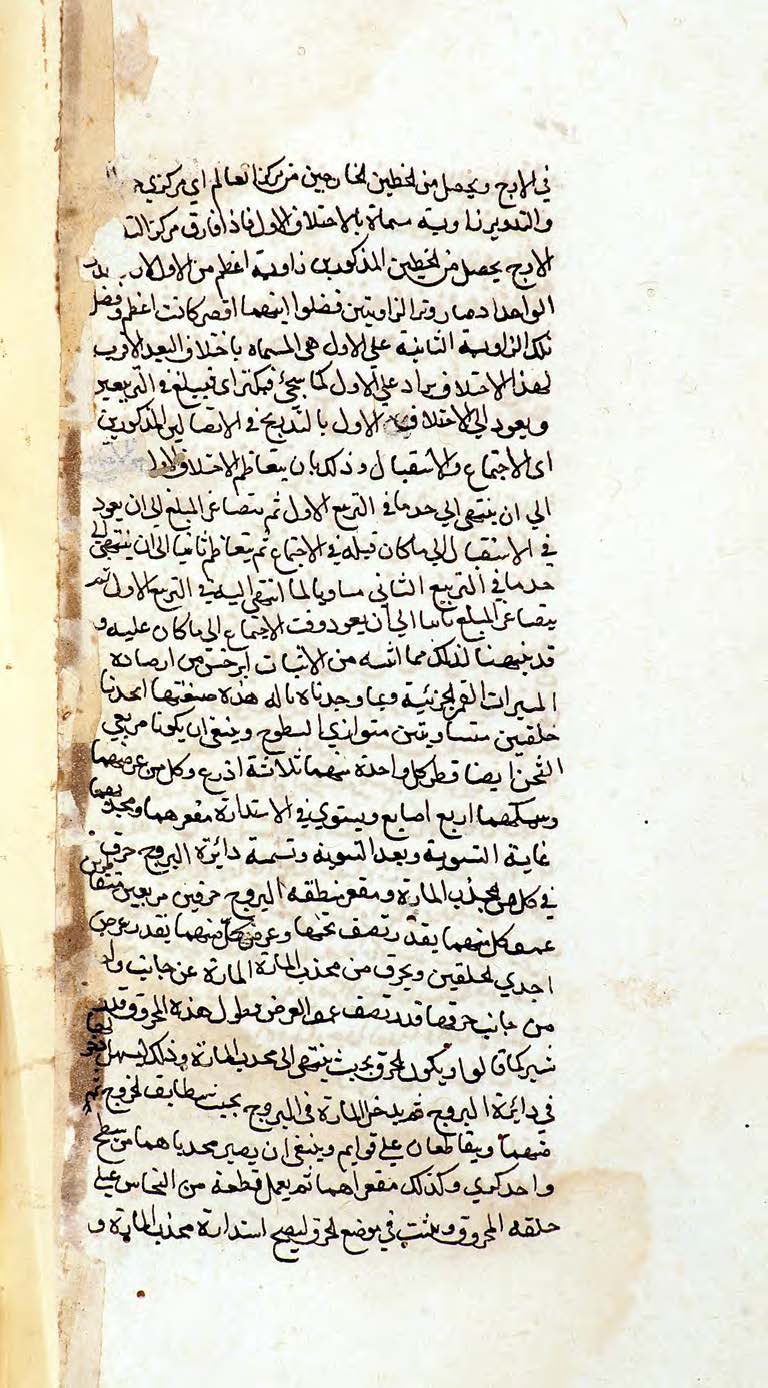 في الاوج ويحصل من الخطين الخارجين من مركز العالم اي مركزي
والتدوير زاوية مسماة بالاختلاف الاول فاذا فارق مركز
الاوج يحصل من الخطين المذكورين زاوية اعظم من الاول لان
الواحد اذ صار وتر الزاويتين فضلوا ايتهما اقصر كانت اعظم وفضل
تلك الزاوية الثانية علي الاول هي المسماه باختلاف البعد الاقرب
لهذا الاختلاف يراد علي الاول كما سيجئ فيكثر اي فيبلغ في التربيعين
ويعود الي الاختلاف الاول بالتدريج في الاتصالين المذكورين
اي الاجتماع والاستقبال وذلك بان يتعاظم الاختلاف الاول
الي ان ينتهي الي حد ما في التربيع الاول ثم يتصاغر المبلغ الي ان يعود
في الاستقبال الي ما كان قبله في الاجتماع ثم يتعاظم ثانيا الي ان ينتهي الي
حد ما في التربيع الثاني مساويا لما انتهي اليه في التربيع الاول ثم
يتصاغر المبلغ ثانيا الي ان يعود وقت الاجتماع الي ما كان عليه و
قد نبهنا لذلك مما اثبته من الاثبات ابرخس من ارصاده
المسيرات القمر الجزئية وبما وجدناه باله هذه صفتها اتخذنا
حلقتين متساويتين متوازي السطوح وينبغي ان يكونا مربعي
الثخن ايضا قطر كل واحدة منهما ثلاثة اذرع وكل من عرضهما
وسمكهما اربع اصابع ويستوي في الاستدارة مقعرهما ومحدبهما
غاية التسوية وبعد التسوية وتسمة دائرة البروج حرق
في كل من محدب المارة ومقعر منطقه البروج حرفين مربعين متقاطرين
عمق كل منهما بقدر نصف ثخنها وعرض كل منهما بقدر عرض
احدي الحلقين ويحرق من محدب المارة المارة عن جانب واحد
من جانب حرقها قدر نصف عمق العرض وطول هذه المحروق قدر
شبر كما قالوا ويكون الحرق بحيث ينتهي الي محدب المارة وذلك ليسهل
في دائرة البروج ثم يدخل المارة في البروج بحيث ينطابق الخروج
منهما ويتقاطعان علي قوايم وينبغي ان يصير محدباهما من سطح
واحد كري وكذلك مقعراهما ثم يعمل قطعة من النحاس علي
حلقه المحروق ويثبت في موضع الحرق ليصح استدارة محدب المارة و